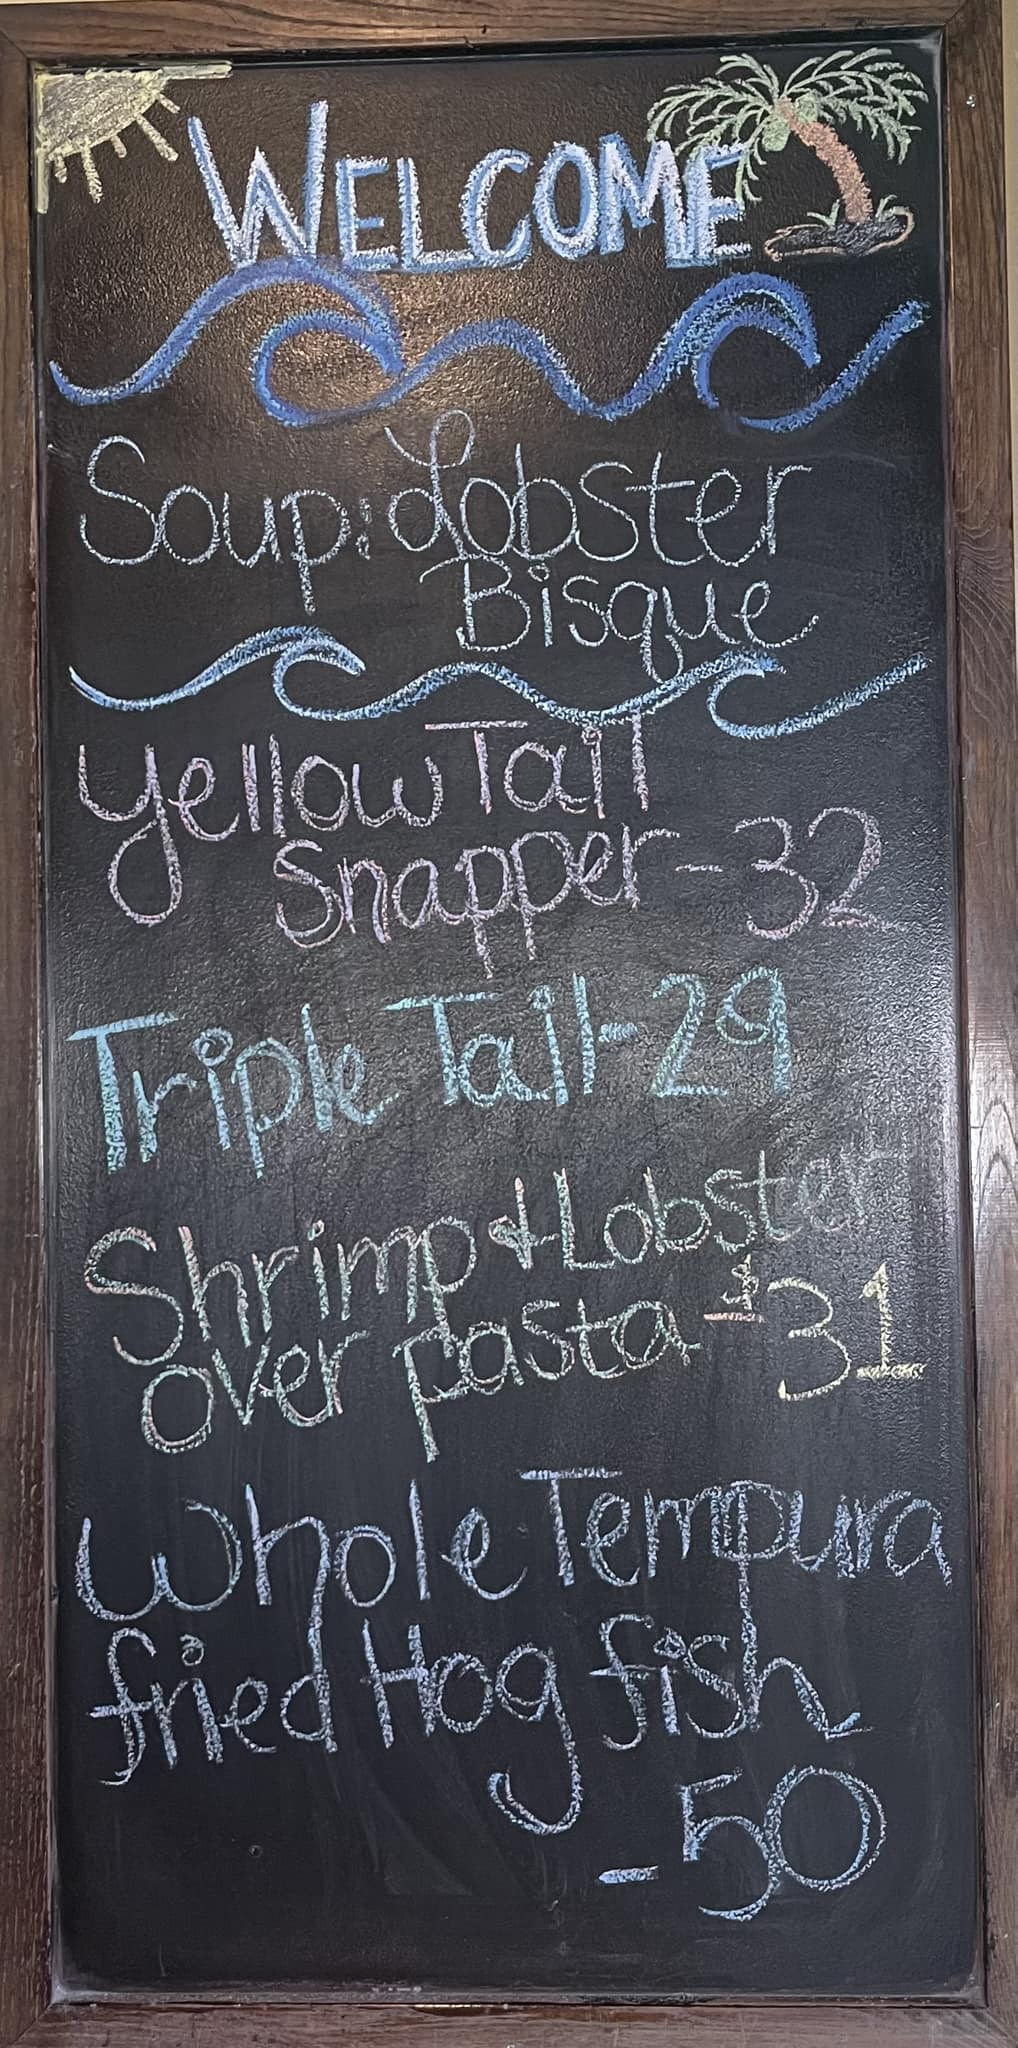 WELCOME
Soup: Lobster
Bisque
Yellow Tail
Snapper - 32
Triple Tail - 29
Shrimp & Lobster
over pasta - 31
Whole Tempura
fried Hog fish
- 50